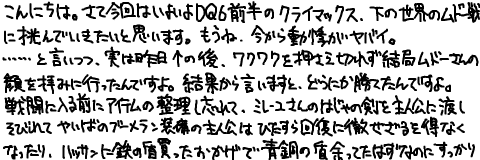 こんにちは。さて今回はいよいよDQ6前半のクライマックス、下の世界のムドー戦
に挑んでいきたいと思います。もうね、今から動悸がヤバイ。
……と言いつつ、実は昨日個の後、ワクワクを押さえ切れず結局ムドーさんの
顔を拝みに行ったんですよ。結果から言いますと、どうにか勝てたんですよ。
戦闘に入る前にアイテムの整理し忘れて、ミレーユさんのはじゃの剣を主人公に渡し
そびれてやいばのブーメラン装備の主人公はひたすら回復に徹せざるを得なく
なったり、ハッサンに鉄の盾買ったおかげで青銅の盾余ってたはずなのにすっかり